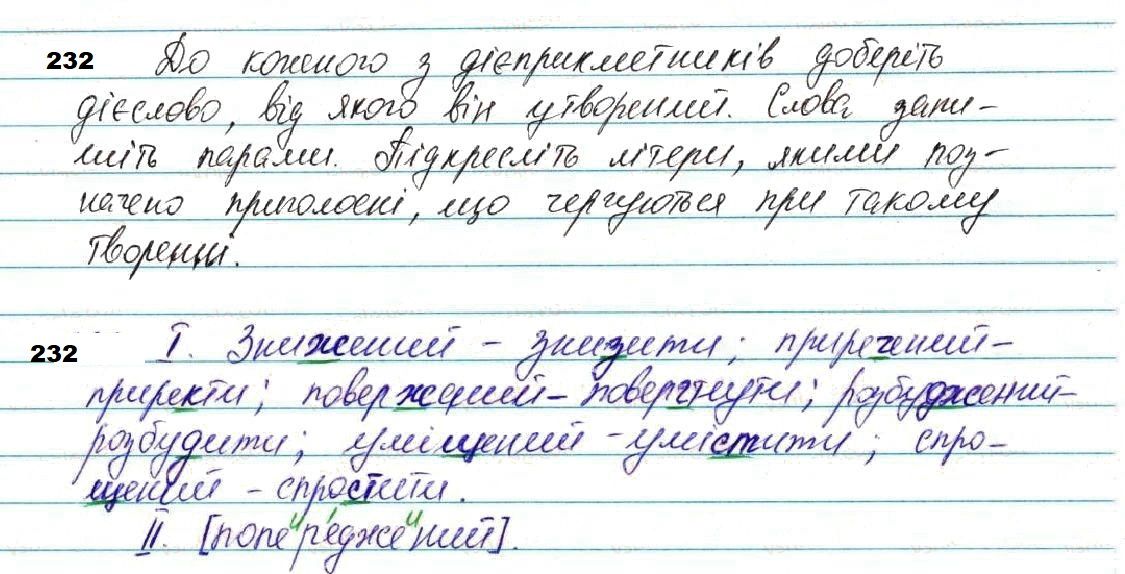 232 До кожного з дієприкметників доберіть
дієслово, від якого він утворений. Слова запи-
шіть парами. Підкресліть літери, якими поз-
начено приголосні, що чергуються при такому
творенні.
232 I. Знижений – знизити; приречений–
приректи; повержений– повергнути; розбуджений–
розбудити; уміщений – умістити; спро-
щений – спростити.
II. [попеире́джеиний].